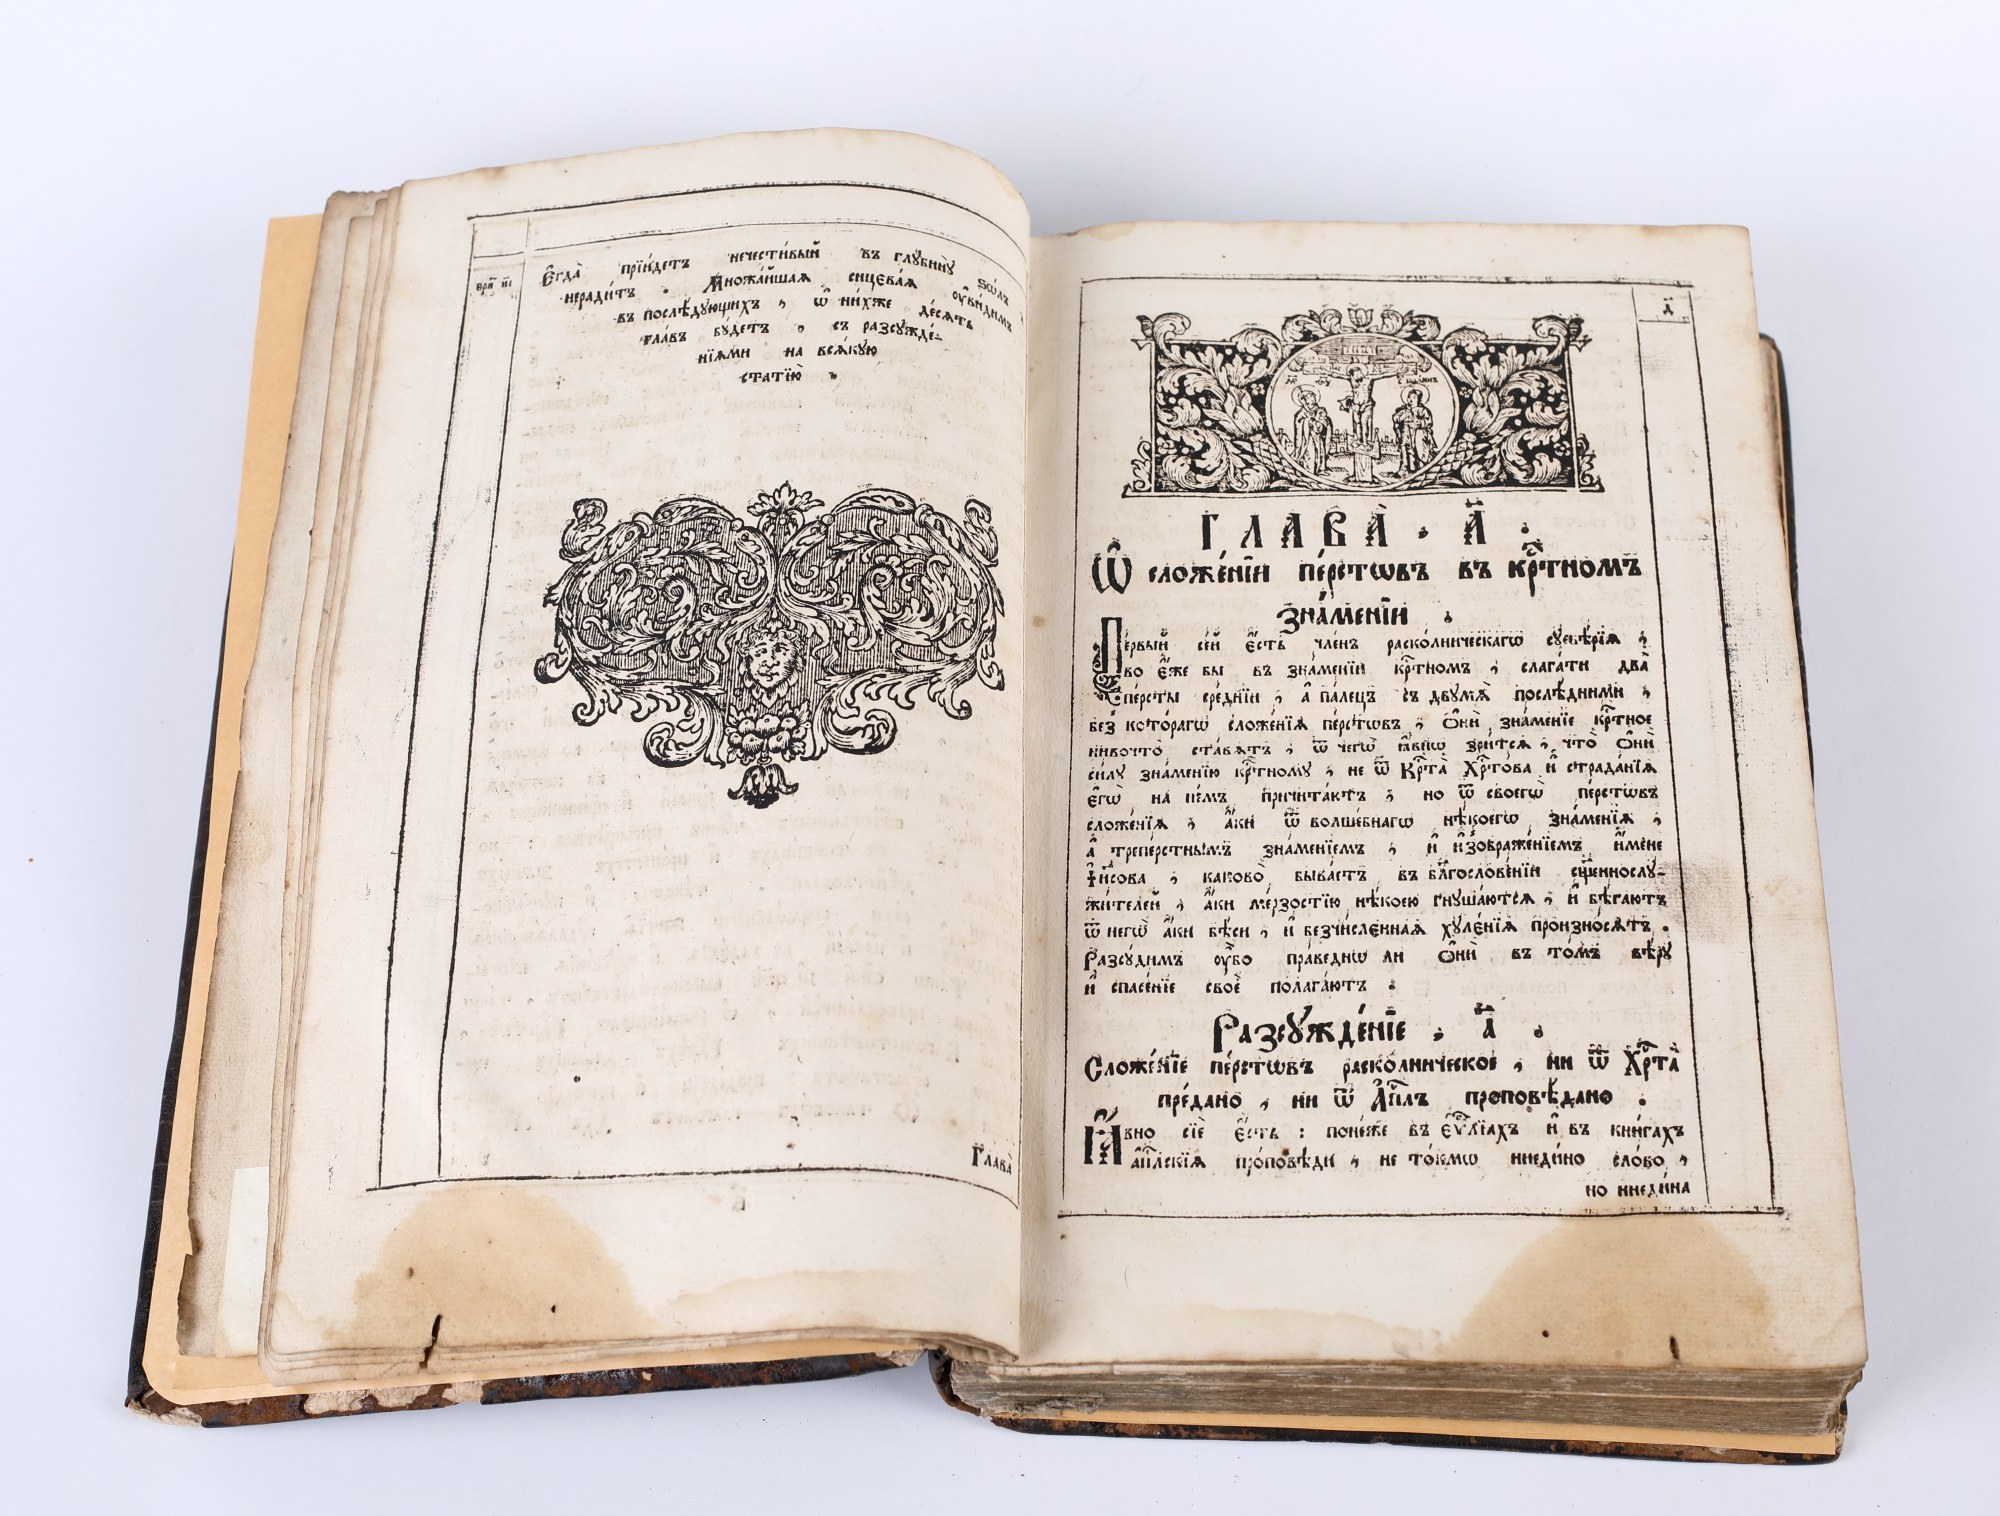 Е҆гда̀ прїи́детъ нечести́вый въ глꙋбинꙋ̀ ѕѡ́лъ
неради́тъ . Мнѡжа́йшая сицева́я ᲂу҆ви́димъ
въ послѣ́дующихъ , ѿ ни́хже де́сять
гла́въ бꙋ́детъ , съ разсꙋжде́-
нїями на вся́кую
статїю̀
Глава̀
д҃
ГЛАВА̀ . а҃ .
Ѡ҆ сложе́нїи пе́рстѡвъ въ крⷭ҇тномъ
зна́менїи .
Пе́рвый се́й є҆́сть чле́нъ раско́лническагѡ сꙋевѣ́рїя ,
во є҆́же бы въ зна́менїи крⷭ҇тномъ , слага́ти два̀
пе́рсты сре́днїи , а҆ па́лецъ съ двумѧ̀ послѣ́дними ,
без̾ котора́гѡ сложе́нїя пе́рстѡвъ , ѻ҆нѝ зна́менїе крⷭ҇тное
нивочто̀ ста́вятъ , ѿ чегѡ̀ ꙗ҆́внѡ зри́тся , что̀ ѻ҆нѝ
си́лꙋ зна́менїю крⷭ҇тномꙋ , не ѿ Крⷭ҇та̀ Хрⷭ҇то́ва и҆ страда́нїя
є҆гѡ̀ на не́мъ причита́ютъ , но ѿ своегѡ̀ пе́рстѡвъ
сложе́нїя , а҆́ки ѿ волше́бнагѡ нѣ́коегѡ зна́менїя ,
а҆ трепе́рстнымъ зна́менїемъ , и҆ и҆зображе́нїемъ и҆́мене
І҆и҃сова , каково̀ быва́етъ въ блⷭ҇гослове́нїи сщ҃еннослꙋ-
жи́телей , а҆́ки ме́рзостїю нѣ́коею гнꙋша́ются , и҆ бѣ́гаютъ
ѿ негѡ̀ а҆́ки бѣ́си , и҆ безчи́сленная хꙋле́нїя произно́сятъ .
Разсꙋ́димъ ᲂу҆̀бо пра́веднѡ ли ѻ҆нѝ въ то́мъ вѣ́рꙋ
и҆ спасе́нїе своѐ полага́ютъ .
Разсꙋжде́нїе , а҃ .
Сложе́нїе пе́рстѡвъ раско́лническое , ни ѿ Хрⷭ҇та̀
пре́дано , ни ѿ А҆пⷭ҇лъ проповѣ́дано .
Ꙗ҆́вно сїѐ є҆́сть : поне́же въ є҆ѵⷢ҇лїахъ и҆ въ кни́гахъ
а҆пⷭ҇лскїя про́повѣди , не то́кмѡ ниеди́но сло́во ,
но ниеди́на